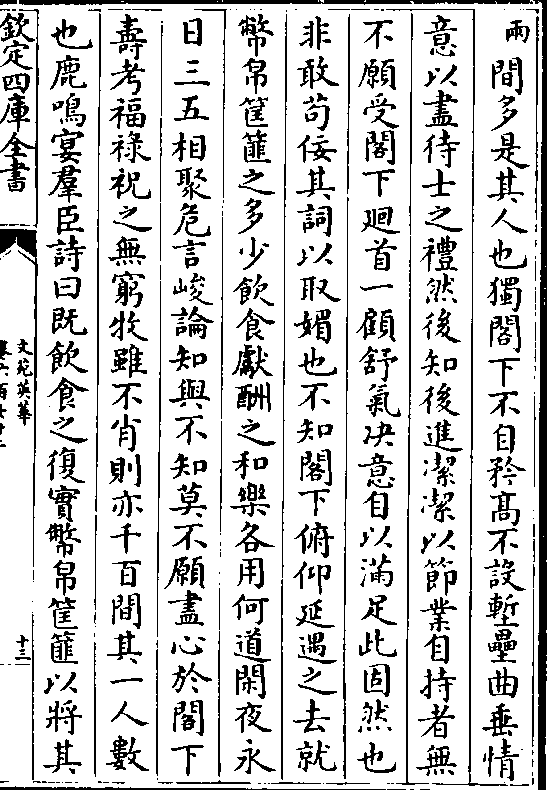 兩間多是其人也獨閤下不自矜髙不設塹壘曲垂情
意以盡待士之禮然後知後進潔潔以節業自持者無
不願受閤下廻首一顧舒氣决意自以滿足此固然也
非敢茍佞其詞以取媚也不知閤下俯仰延遇之去就
幣帛筐篚之多少飲食獻酬之和樂各用何道閑夜永
日三五相聚危言峻論知與不知莫不願盡心於閤下
壽考福祿祝之無窮牧雖不肖則亦千百間其一人數
也鹿鳴宴羣臣詩曰既飲食之復實幣帛筐篚以將其
欽定四庫全書
文苑英華
十三